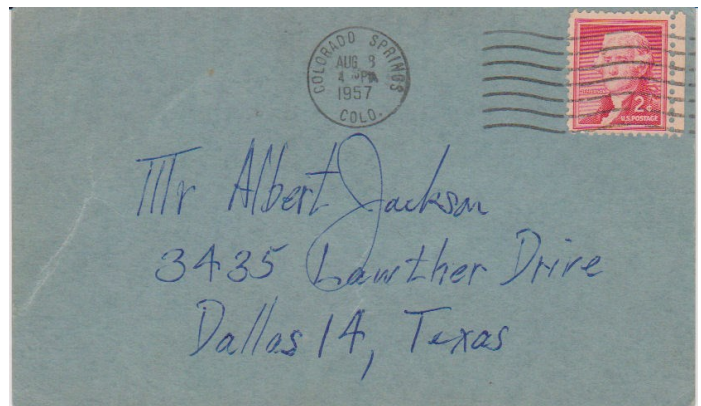 COLORADO SPRINGS
AUG 8
4 PM
1957
COLO.
2¢
U.S. POSTAGE
Mr Albert Jackson
3435 Lawther Drive
Dallas 14, Texas